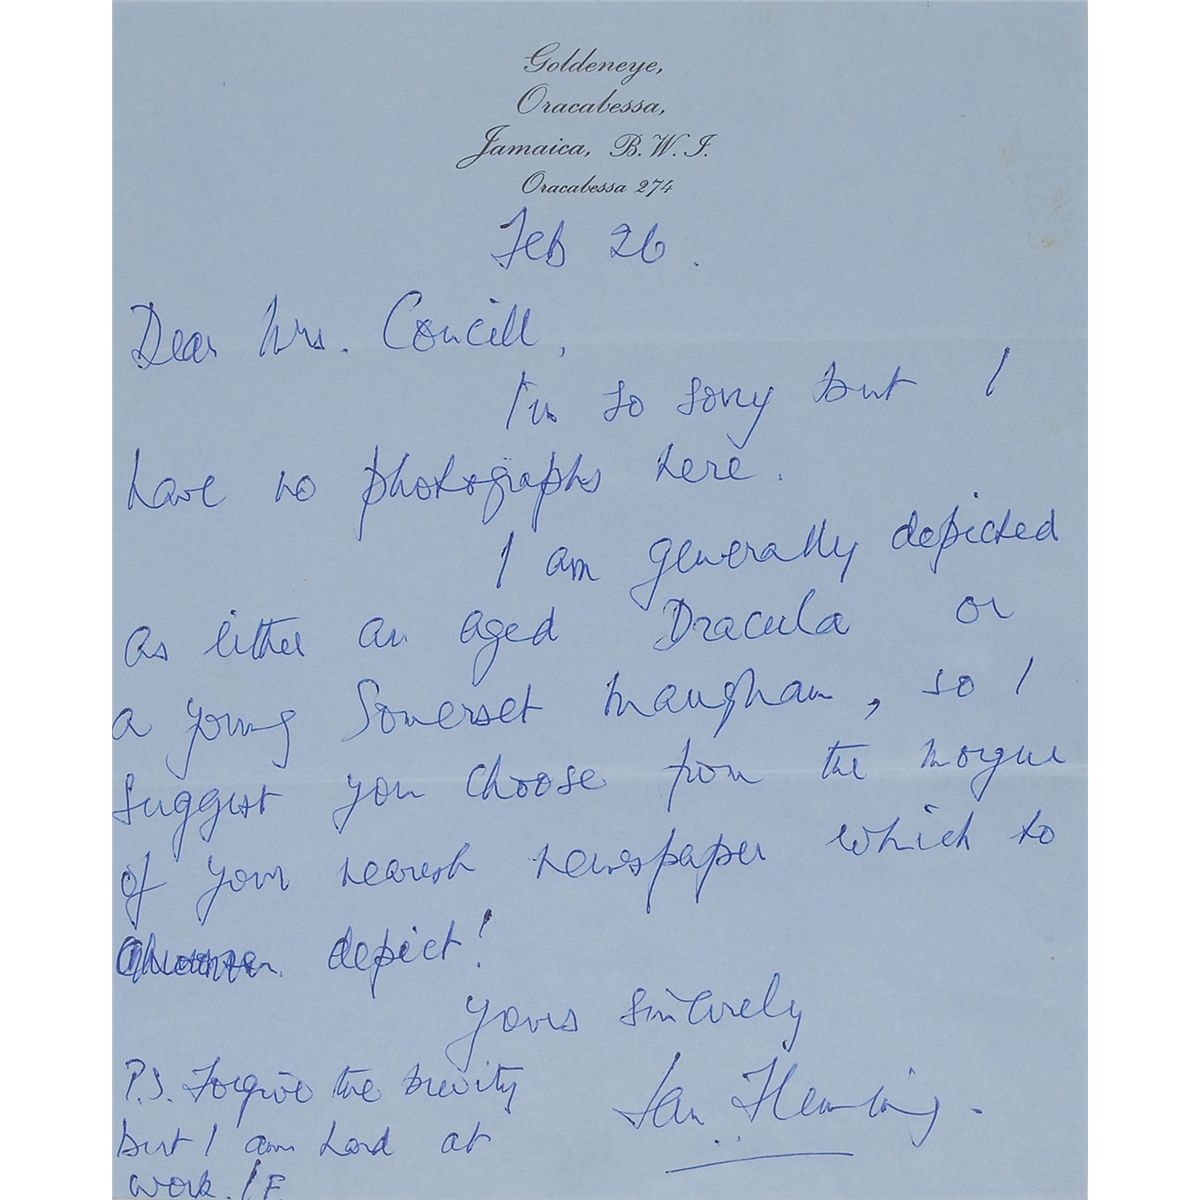 Goldeneye,
Oracabessa,
Jamaica, B.W.I.
Oracabessa 274
Feb 26.
Dear Mrs. Concill,
I'm so sorry but I
have no photographs here.
I am generally depicted
as either an aged Dracula or
a young Somerset Maugham, so I
suggest you choose from the morgue
of your nearest newspaper which to
depict!
Yours sincerely
Ian Fleming.
P.S. Forgive the brevity
but I am hard at
work. IF